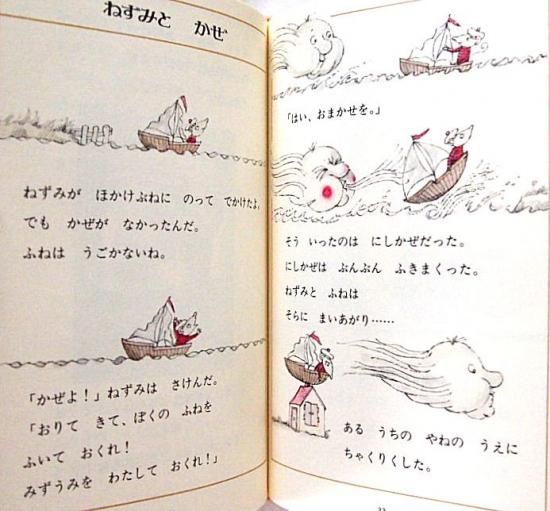 ねずみと　かぜ
ねずみが　ほかけぶねに　のって　でかけたよ。
でも　かぜが　なかったんだ。
ふねは　うごかないね。
「かぜよ！」ねずみは　さけんだ。
「おりて　きて、ぼくの　ふねを
ふいて　おくれ！
みずうみを　わたして　おくれ！」
「はい、おまかせを。」
そう　いったのは　にしかぜだった。
にしかぜは　ぶんぶん　ふきまくった。
ねずみと　ふねは
そらに　まいあがり……
ある　うちの　やねの　うえに
ちゃくりくした。